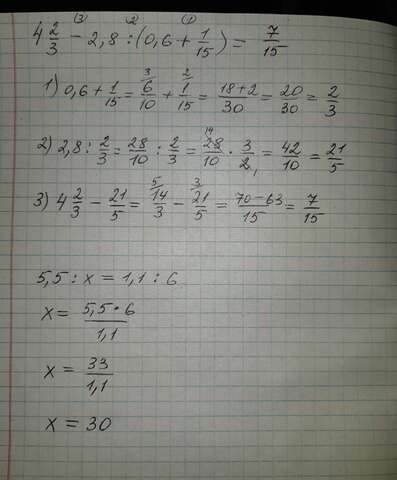 (3) (2) (1)
4 2/3 - 2,8 : (0,6 + 1/15) = 7/15
1) 0,6 + 1/15 = 6/10 ³ + 1/15 ² = (18+2)/30 = 20/30 = 2/3
2) 2,8 : 2/3 = 28/10 : 2/3 = 28/10 ¹⁴ · 3/2 ₁ = 42/10 = 21/5
3) 4 2/3 - 21/5 = 14/3 ⁵ - 21/5 ³ = (70-63)/15 = 7/15
5,5 : x = 1,1 : 6
x = (5,5·6)/1,1
x = 33/1,1
x = 30